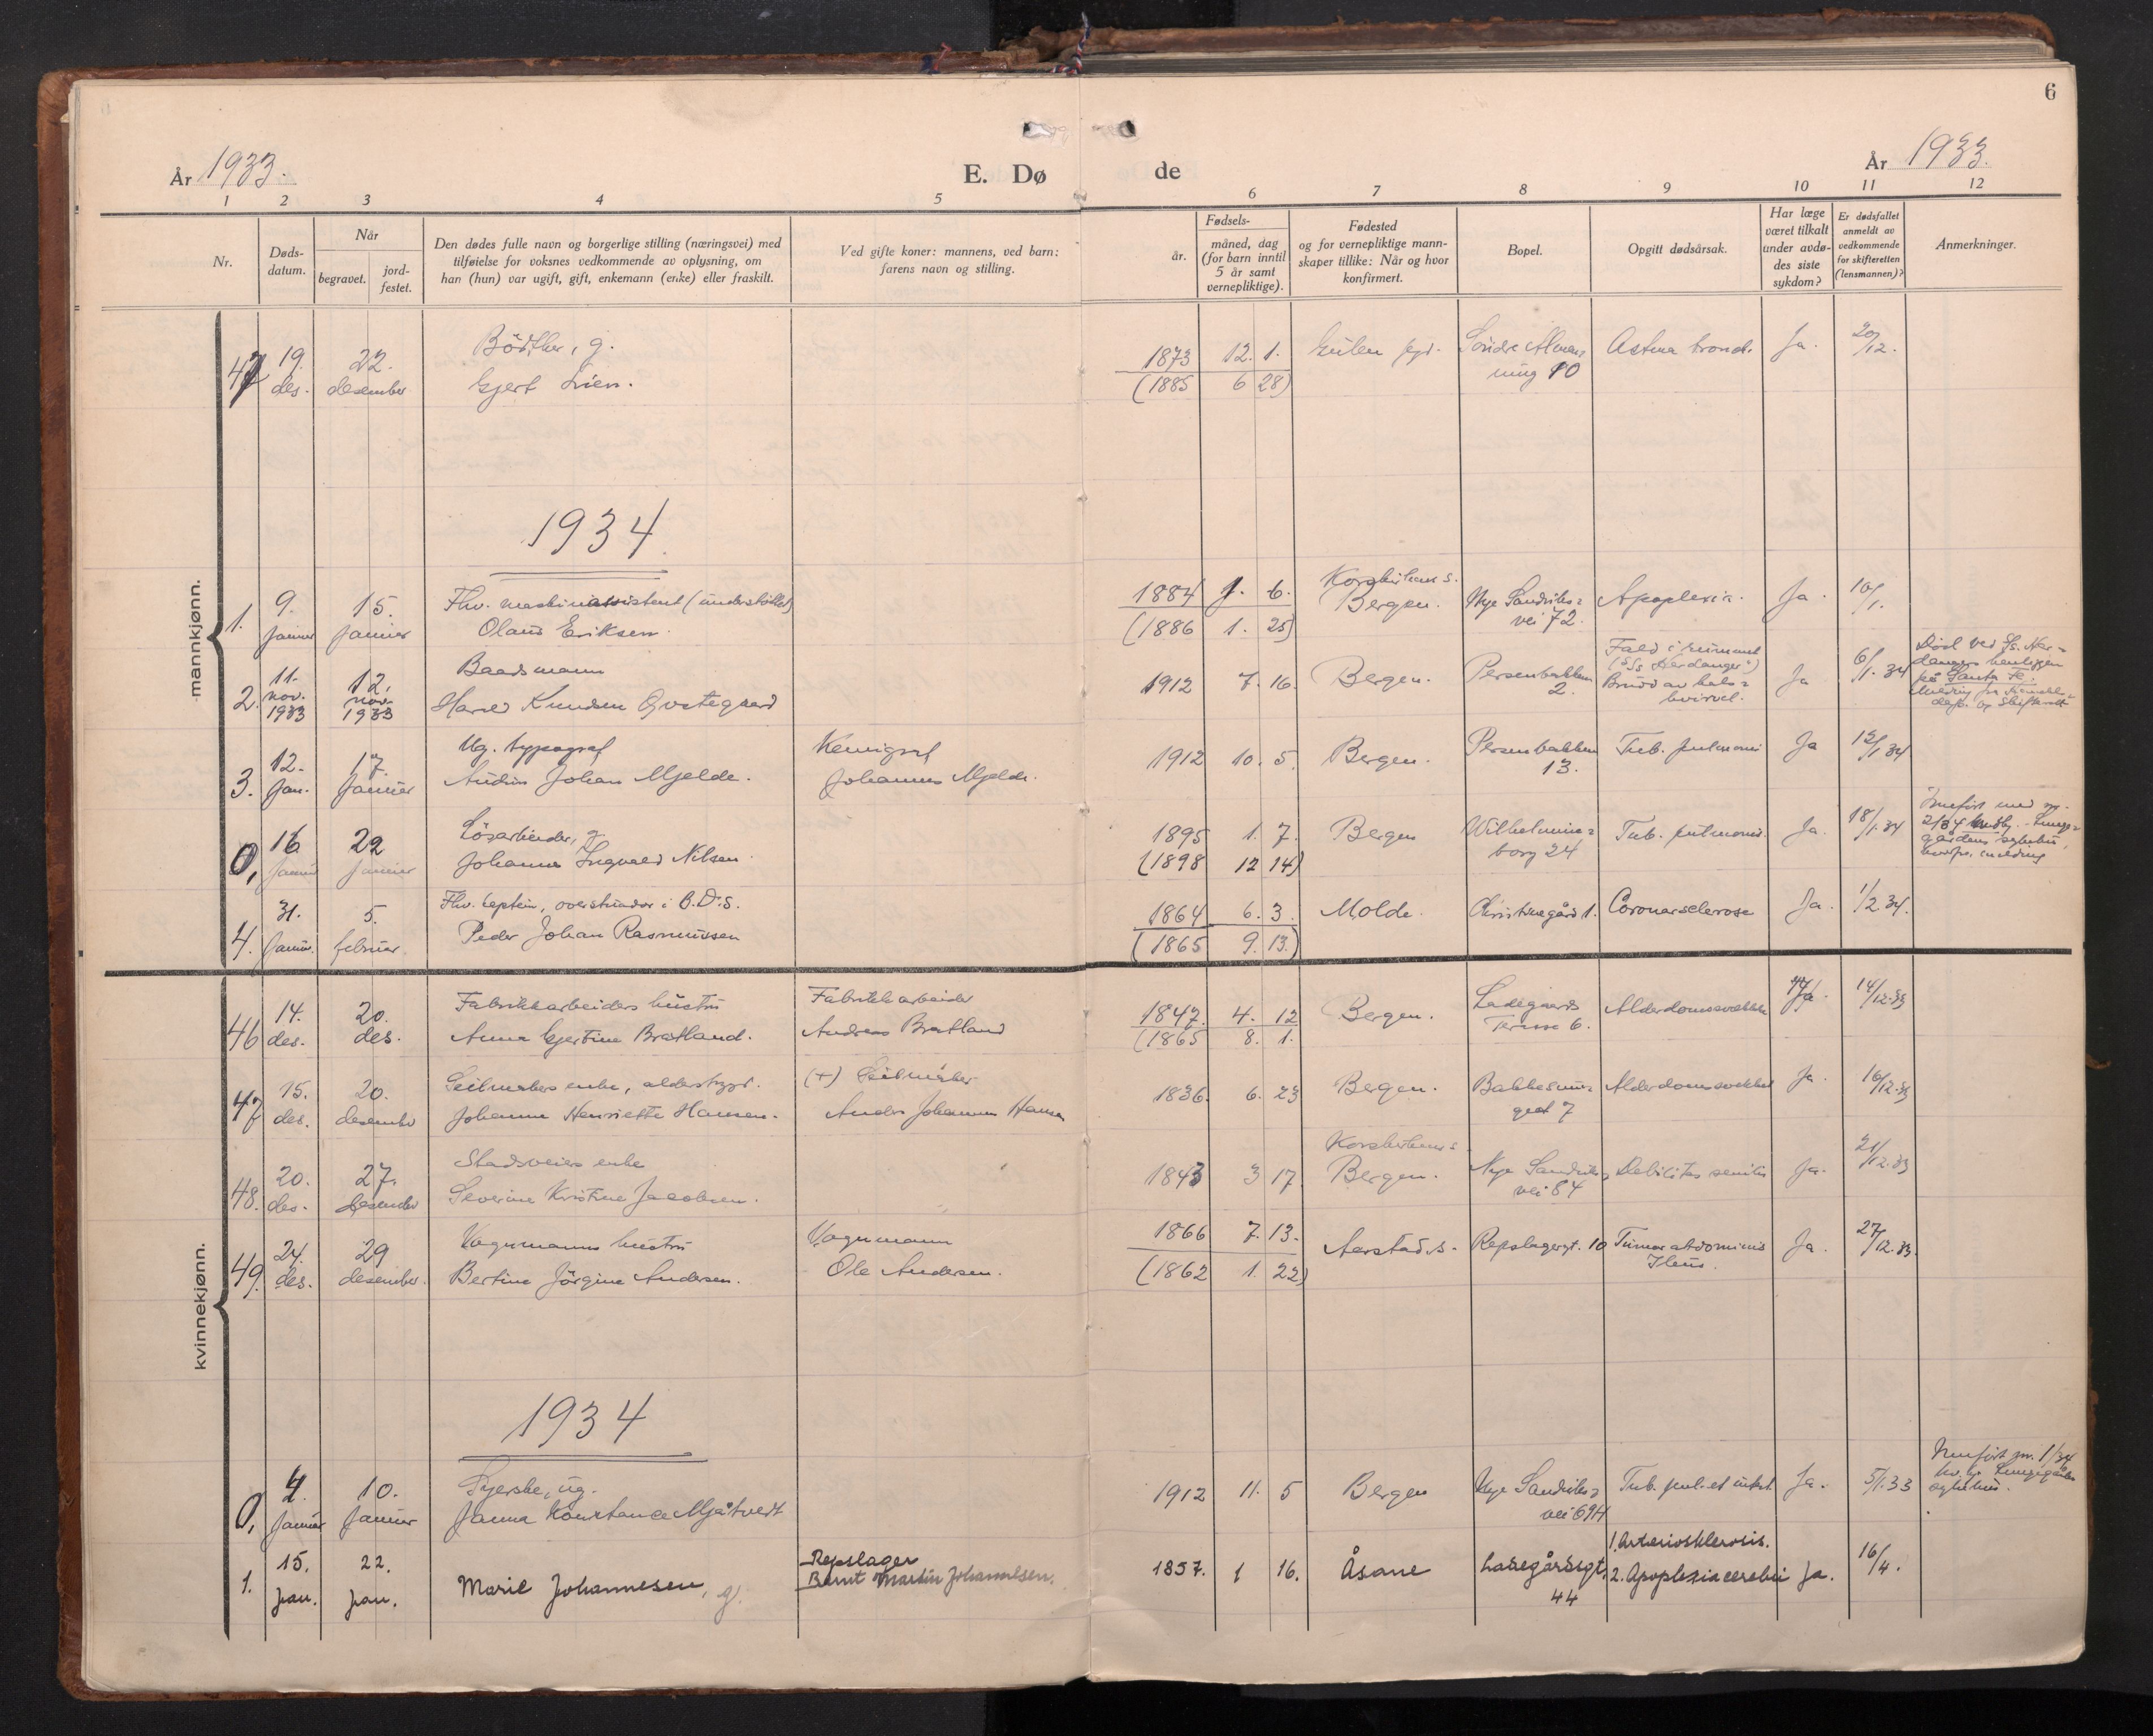 6
År 1933.
E. Dø de
År 1933.
1 2 3 4 5 6 7 8 9 10 11 12
Nr.
Døds-
datum.
Når
begravet.
jord-
festet.
Den dødes fulle navn og borgerlige stilling (næringsvei) med
tilføielse for voksnes vedkommende av oplysning, om
han (hun) var ugift, gift, enkemann (enke) eller fraskilt.
Ved gifte koner: mannens, ved barn:
farens navn og stilling.
Fødsels-
år.
måned, dag
(for barn inntil
5 år samt
vernepliktige).
Fødested
og for vernepliktige mann-
skaper tillike: Når og hvor
konfirmert.
Bopel.
Opgitt dødsårsak.
Har læge
været tilkalt
under avdø-
des siste
sykdom?
Er dødsfallet
anmeldt av
vedkommende
for skifteretten
(lensmannen)?
Anmerkninger.
mannkjønn.
47 19. 22. Bödker, g. 1873 12. 1. Gulen Söndre Almen= Astma bronch. Ja. 20/12.
des. desember Gjert Lien. (1885 6 28) ning 10
1934
1. 9. 15. Fhv. maskinassistent (understöttet) 1884 1. 6. Korskirkens s. Nye Sandviks= Apoplexia. Ja. 10/1.
Januar Januar Olaus Eriksen. (1886 1. 25) Bergen. vei 72.
2. 11. 12. Baadsmann 1912 7. 16. Bergen. Persenbakken Fald i rummet Ja 6/1.34 Död ved S/s. Har=
nov. nov. Harald Knudsen 2. (S/s Hardanger) dangers henliggen
1933 1933 Brudd av hals= på Santa Fe.
hvirvel.
3. 12. 17. Ug. typograf Kemigraf 1912 10. 5. Bergen. Persenbakken Tub. pulmonis Ja 12/1 34
Jan. Januar Audun Johan Mjelde. Johannes Mjelde. 13.
0, 16 22 Lösarbeider, g. 1895 1. 7. Bergen Wilhelmine= Tub. pulmonis. Ja. 18/1.34 Innfört med nr.
Januar Januar Johannes Ingvald Nilsen. (1898 12 14) borg 24 2/34
4. 31. 5. Fhv. Captein, overstuadør i B.D.S. 1864 6. 3. Molde. Christinegård 1. Coronarsclerose Ja. 1/2.34.
Januar. februar. Peder Johan Rasmussen (1865 9. 13.)
kvinnekjønn.
46 14. 20. Fabrikkarbeiders hustru Fabrikkarbeider 1847. 4. 12 Bergen. Ladegaards Alderdomssvekkelse Ja. 14/12.33
des. des. Anna Gjertine Bratland. Andreas Bratland (1865 8. 1. Terrasse 6.
47 15. 20. Seilmakers enke, alderstrygd. (+) Seilmaker 1836. 6. 23 Bergen. Bakkesmu= Alderdomssvekkelse Ja. 16/12.33
des. desember Johanne Henriette Hansen. Anders Johannes Hansen get 7
48. 20. 27. Stadsveiers enke 1843 3 17 Korskirkens s. Nye Sandviks= Debilitas senilis Ja. 21/12.33
des. desember Severine Kristine Jacobsen. Bergen. vei 84
49. 24. 29 Vognmanns hustru Vognmann 1866 7. 13. Aarstad s. Repslagergt. 10 Tumor abdominis Ja. 27/12.33.
des. desember. Bertine Jörgine Andersen. Ole Andersen. (1862 1. 22) Ileus.
1934
0, 4. 10. Syerske, ug. 1912 11. 5 Bergen Nye Sandviks= Tub. pul. et intest Ja. 5/1.33 Innfört nr. 1/34
Januar Januar Janna Konstanse Mjåtvedt vei 69H sykehus.
1. 15. 22. Marie Johannesen, g. Repslager 1857. 1 16. Åsane Ladegårdsgt. 1. Arteriosklerosis. Ja. 16/4.
jan. jan. Bernt Martin Johannesen. 44 2. Apoplexia cerebri